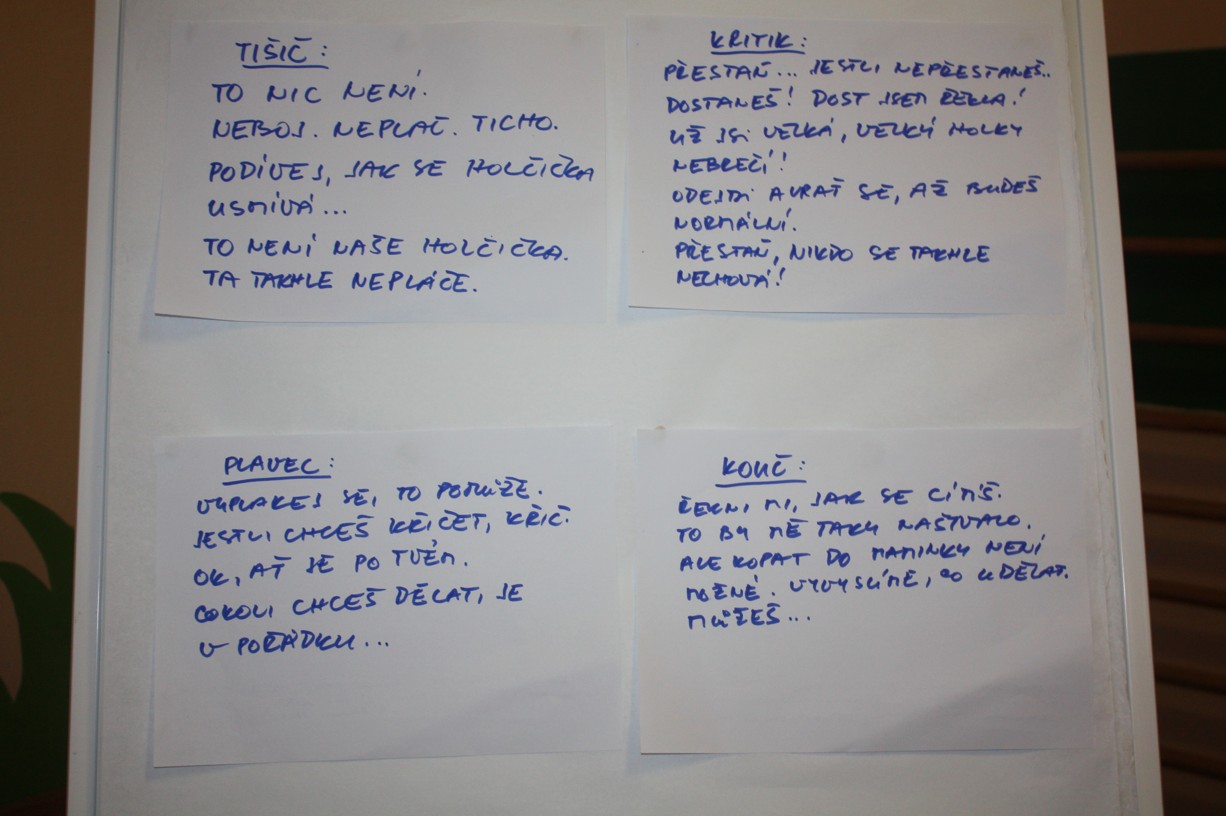 TIŠIČ:
TO NIC NENÍ.
NEBOJ. NEPLAČ. TICHO.
PODÍVEJ, JAK SE HOLČIČKA
USMÍVÁ...
TO NENÍ NAŠE HOLČIČKA.
TA TAKHLE NEPLÁČE.
KRITIK:
PŘESTAŇ... JESTLI NEPŘESTANEŠ..
DOSTANEŠ! DOST JSEM ŘEKLA!
UŽ JSI VELKÁ, VELKÝ HOLKY
NEBREČÍ!
ODEJDI A VRAŤ SE, AŽ BUDEŠ
NORMÁLNÍ.
PŘESTAŇ, NIKDO SE TAKHLE
NECHOVÁ!
PLAVEC:
VYPLAKEJ SE, TO POMŮŽE.
JESTLI CHCEŠ KŘIČET, KŘIČ.
OK, AŤ JE PO TVÉM.
COKOLI CHCEŠ DĚLAT, JE
V POŘÁDKU...
KOUČ:
ŘEKNI MI, JAK SE CÍTÍŠ.
TO BY MĚ TAKY NAŠTVALO.
ALE KOPAT DO MAMINKY NENÍ
MOŽNÉ. VYMYSLÍME, CO UDĚLAT.
MŮŽEŠ...